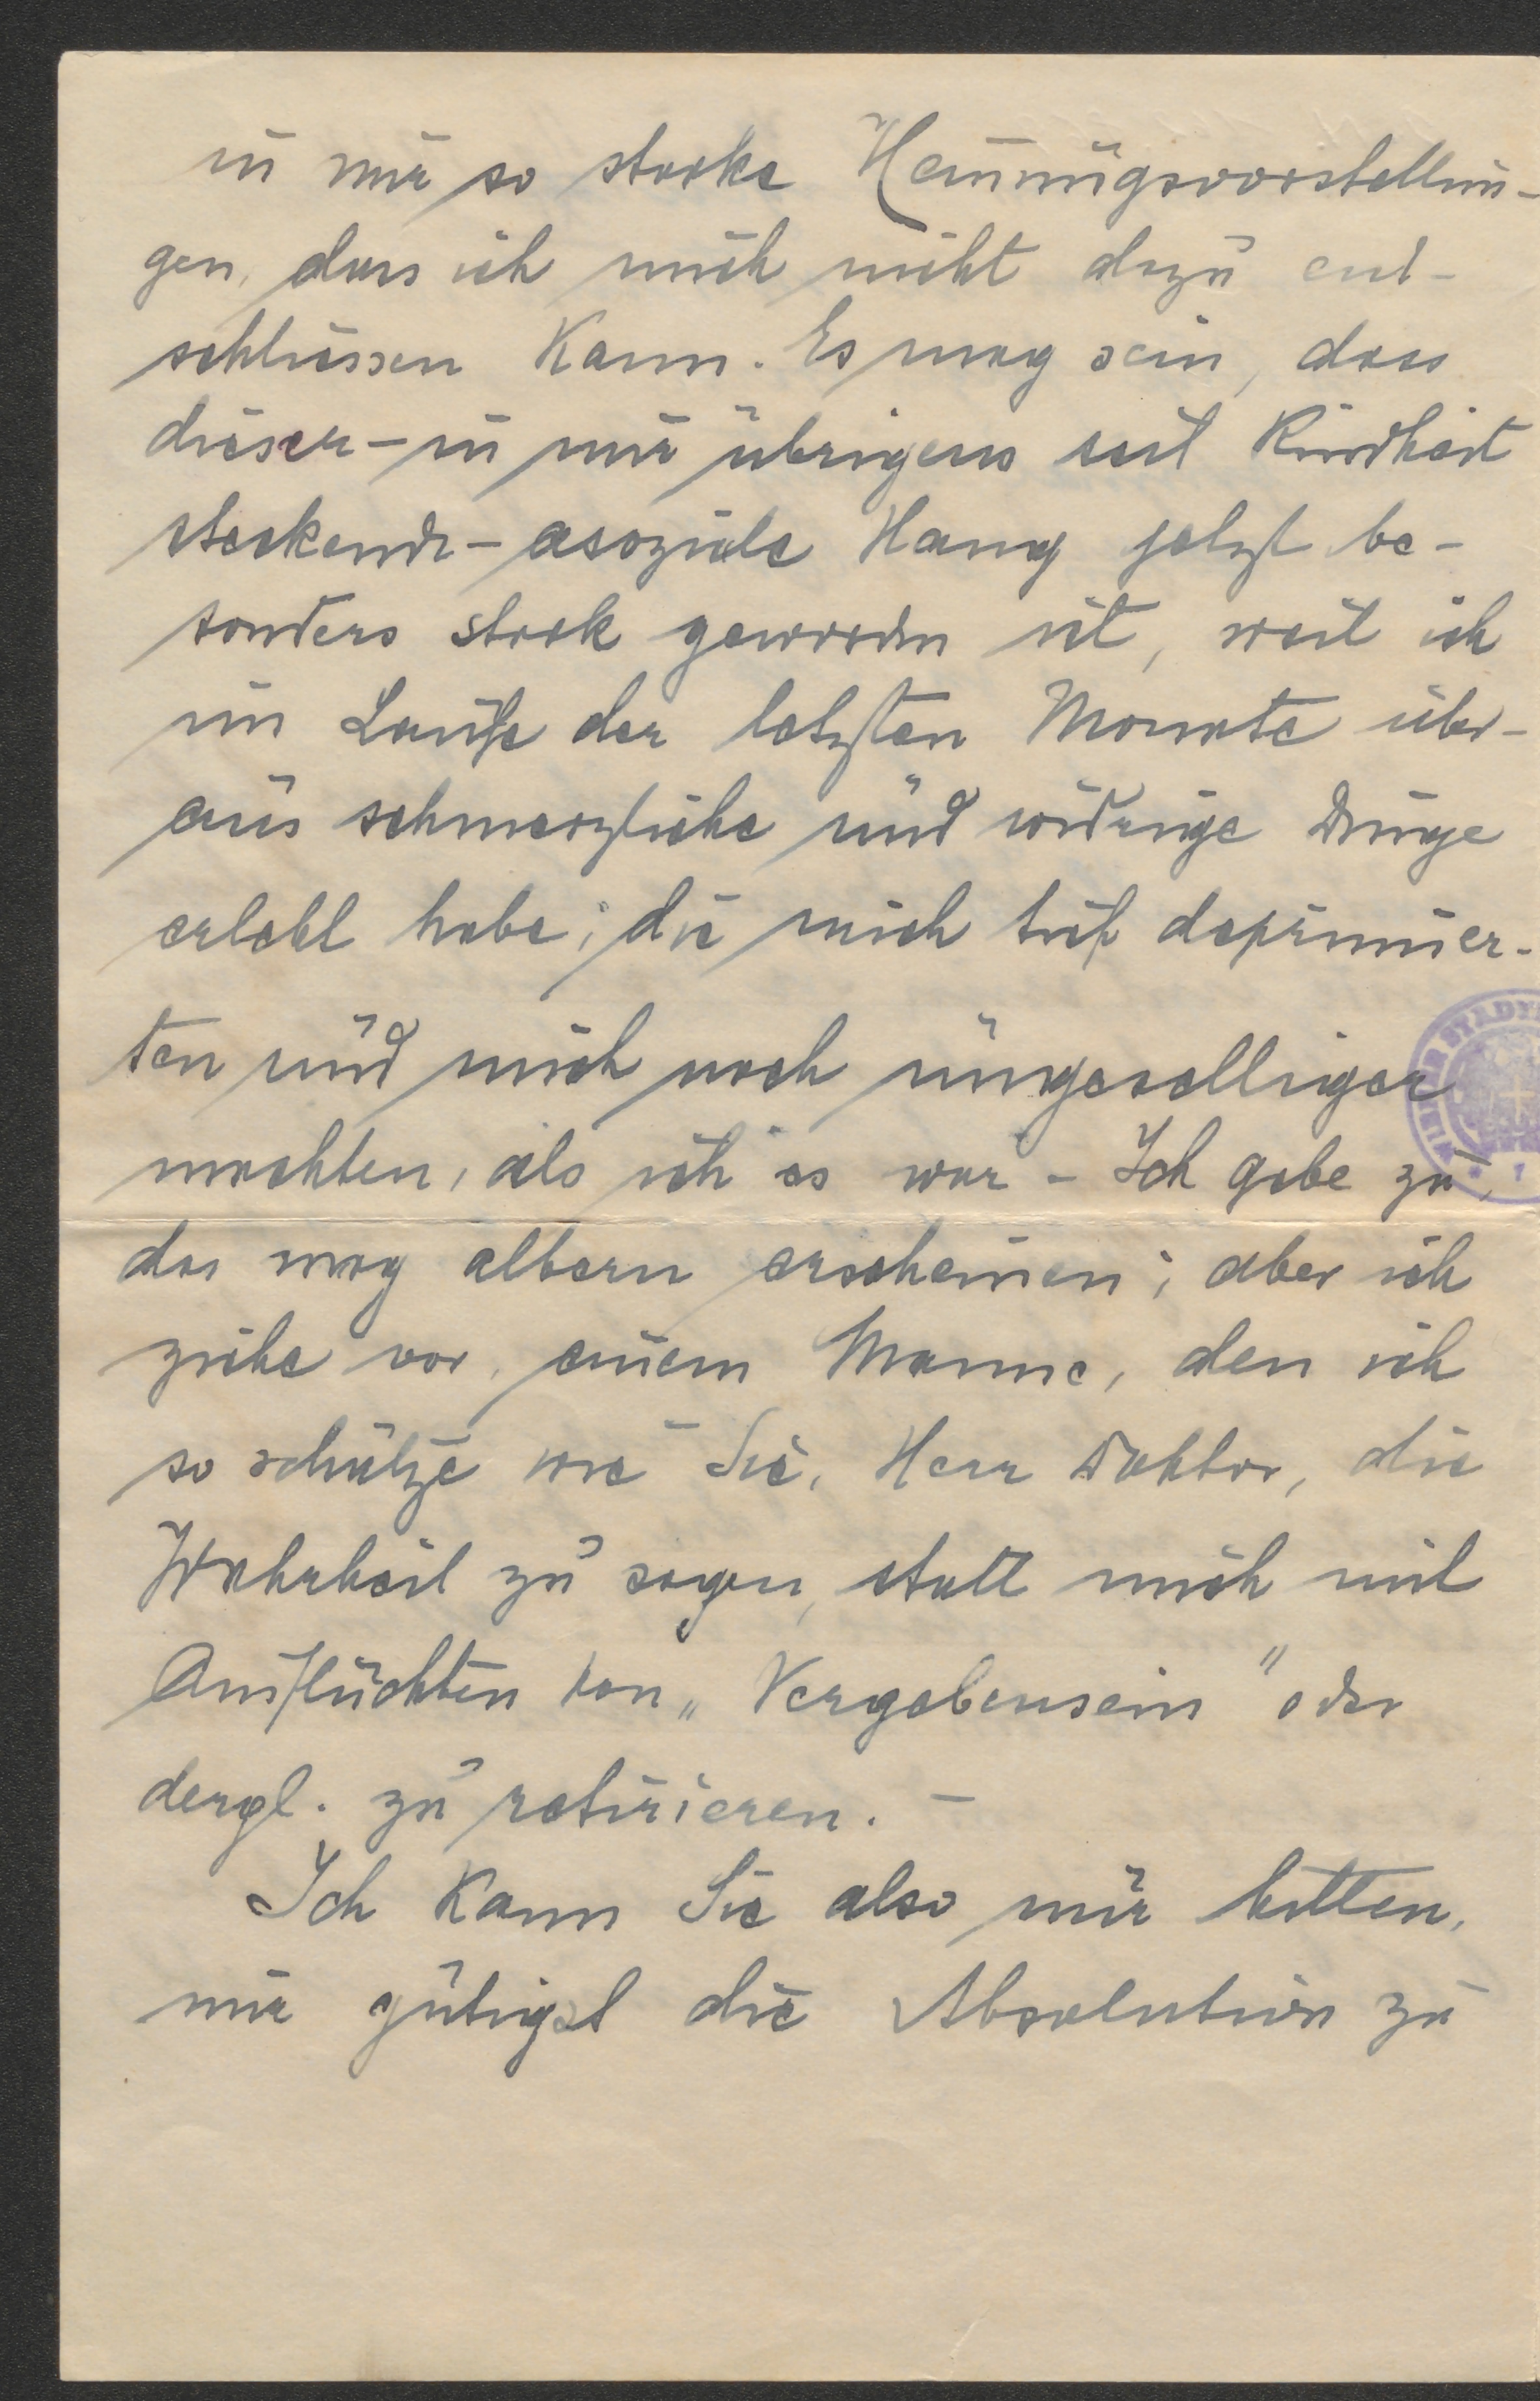 in mir so starke Hem̄ungsvorstellun-
gen, dass ich mich nicht dazu ent-
schliessen kann. Es mag sein, dass
dieser - in mir übrigens seit Kindheit
steckende - asoziale Hang jetzt be-
sonders stark geworden ist, weil ich
im Laufe der letzten Monate über-
aus schmerzliche und widrige Dinge
erlebt habe, die mich tief deprimier-
ten und mich noch ungeselliger
machten, als ich es war - Ich gebe zu,
das mag albern erscheinen; aber ich
ziehe vor, einem Manne, den ich
so schätze wie Sie, Herr Doktor, die
Wahrheit zu sagen, statt mich mit
Ausflüchten von „Vergebensein" oder
dergl. zu retirieren. -
Ich kann Sie also nur bitten,
mir gütigst die Absolution zu
WIENER STADT